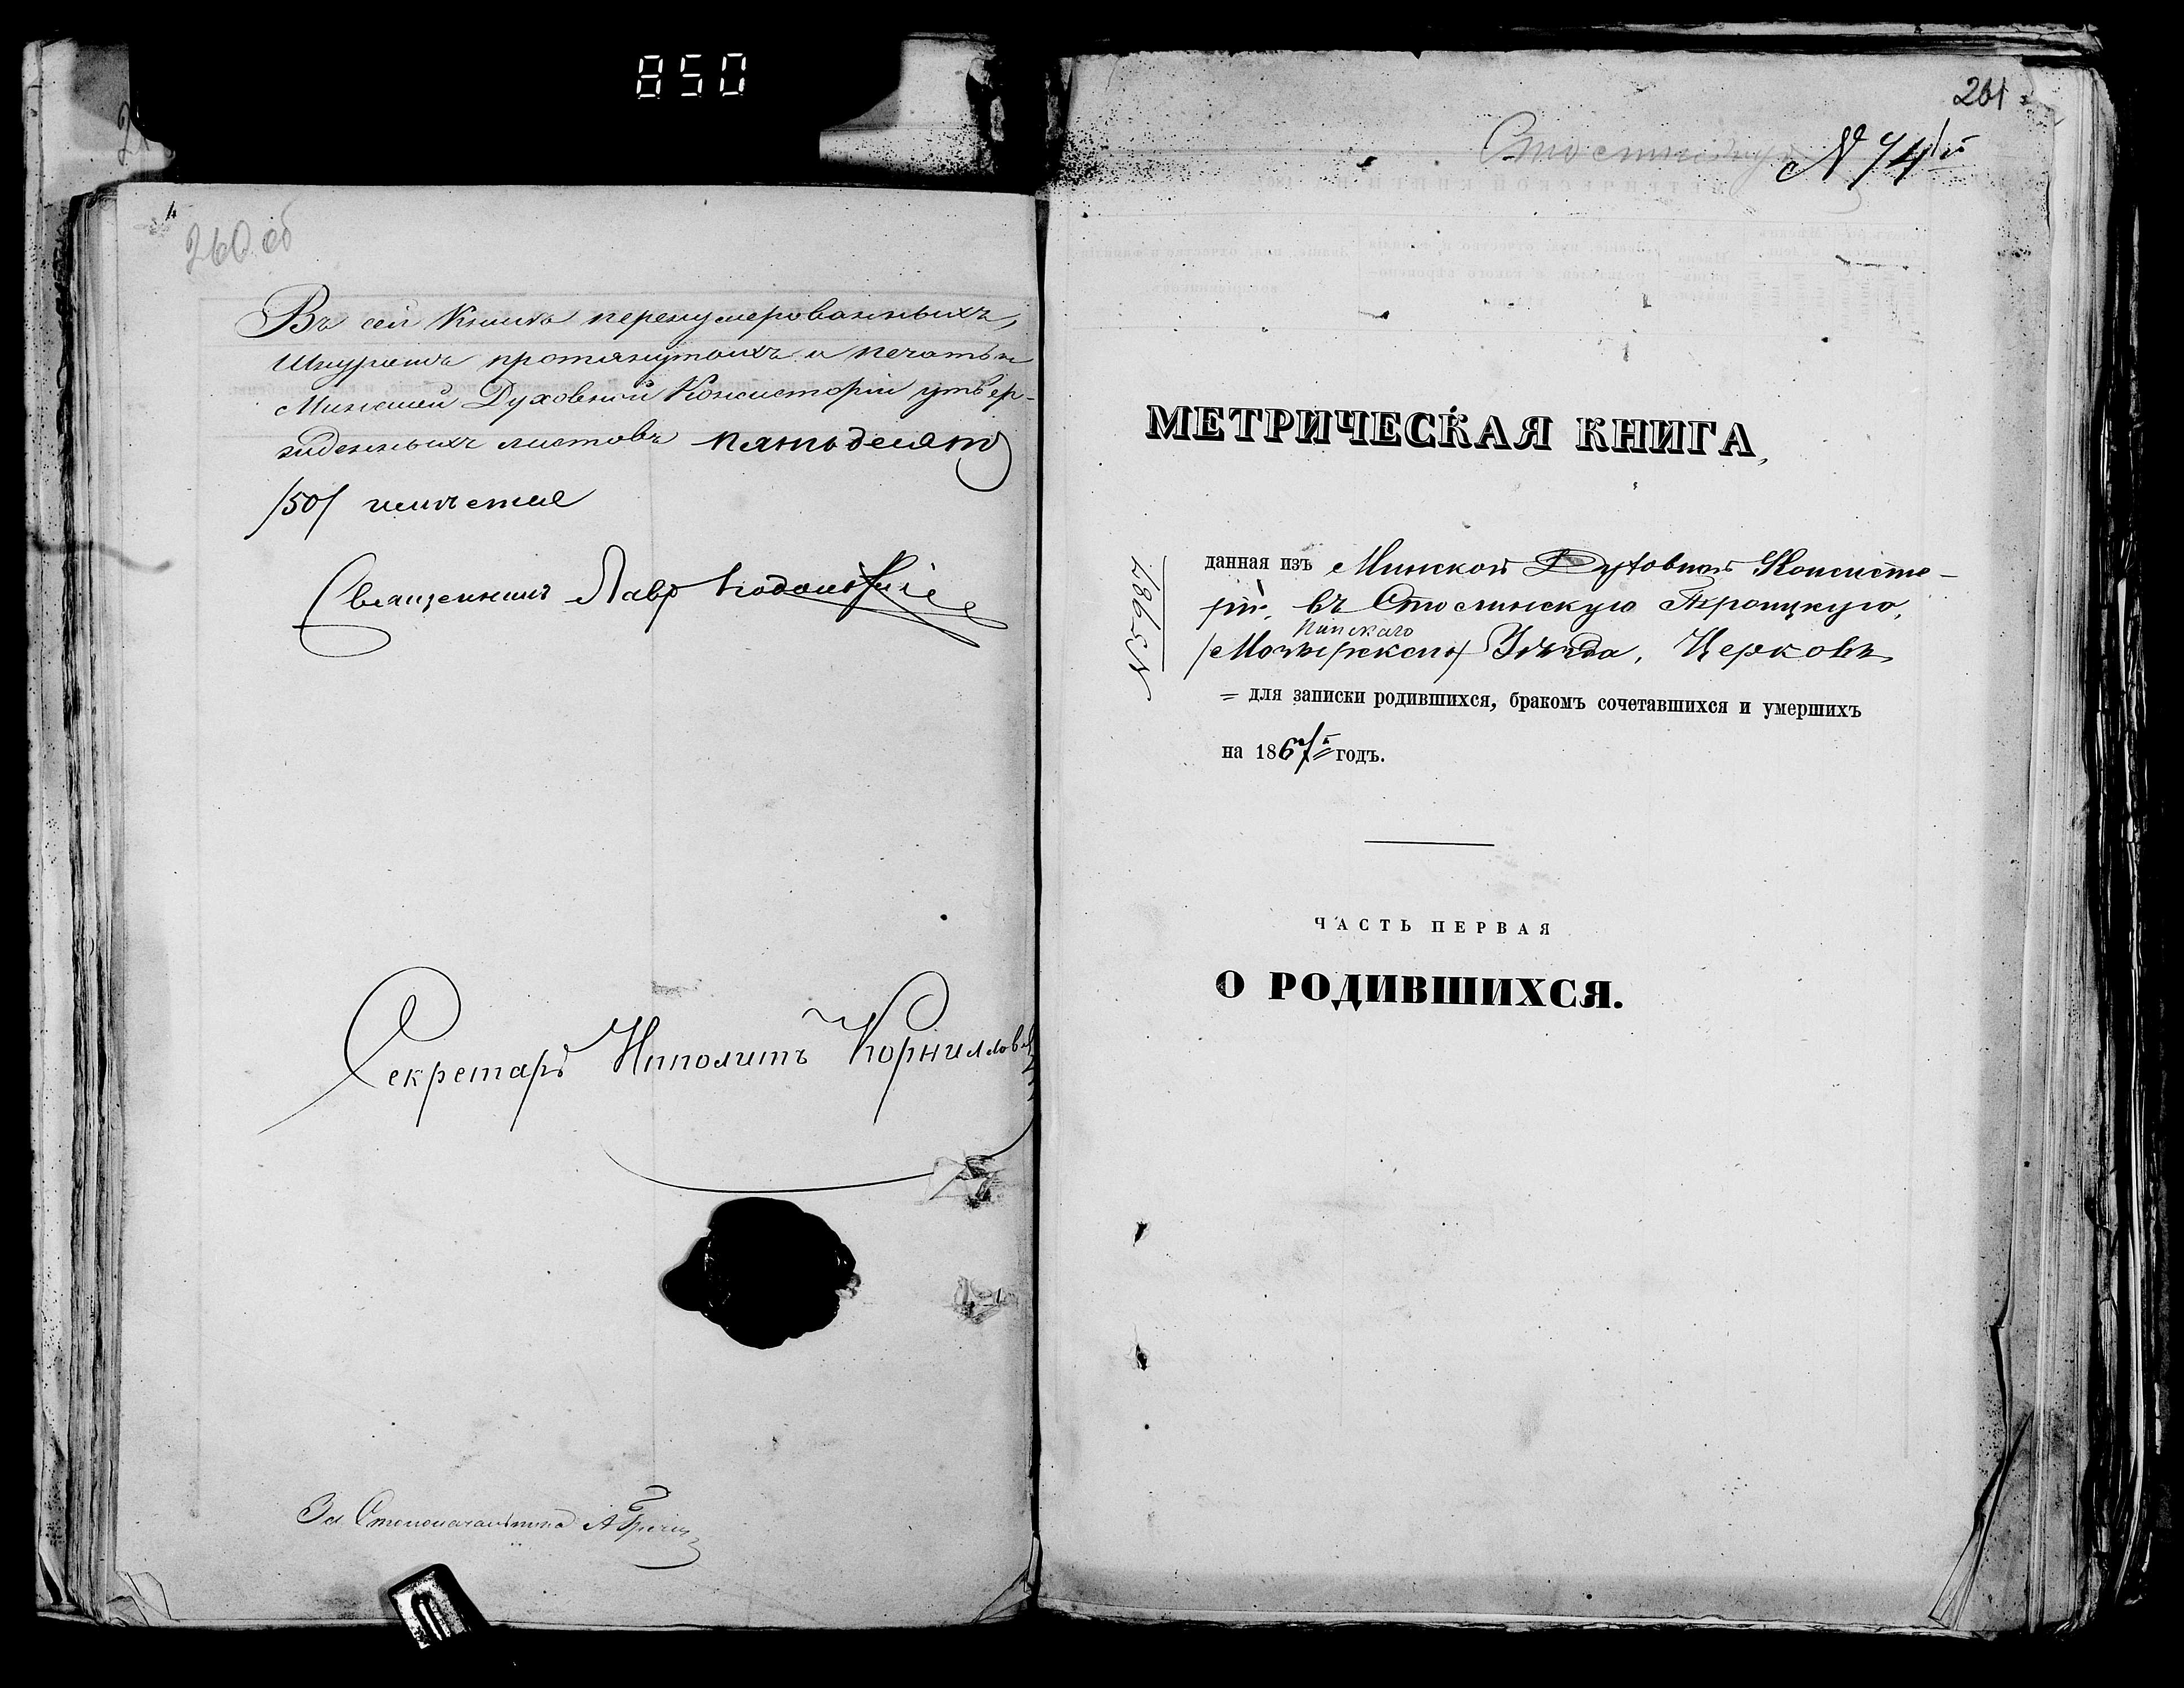 850
260 об
Въ сей Книгѣ перенумерованныхъ,
Шнуромъ протянутыхъ и печатью
Минской Духовной Консисторіи утвер-
жденныхъ листовъ пятьдесят
/50/
Священникъ Лавр
Секретарь Ипполитъ Корнилов
За Столоначальника А
261
№ 74й
МЕТРИЧЕСКАЯ КНИГА,
данная изъ Минской Духовной Консисто-
ріи, въ Столинскую Троицкую,
Пинскаго
/Мозырскаго/ Уѣзда, Церковь
= для записки родившихся, бракомъ сочетавшихся и умершихъ
на 1867й годъ.
№ 3987
ЧАСТЬ ПЕРВАЯ
О РОДИВШИХСЯ.